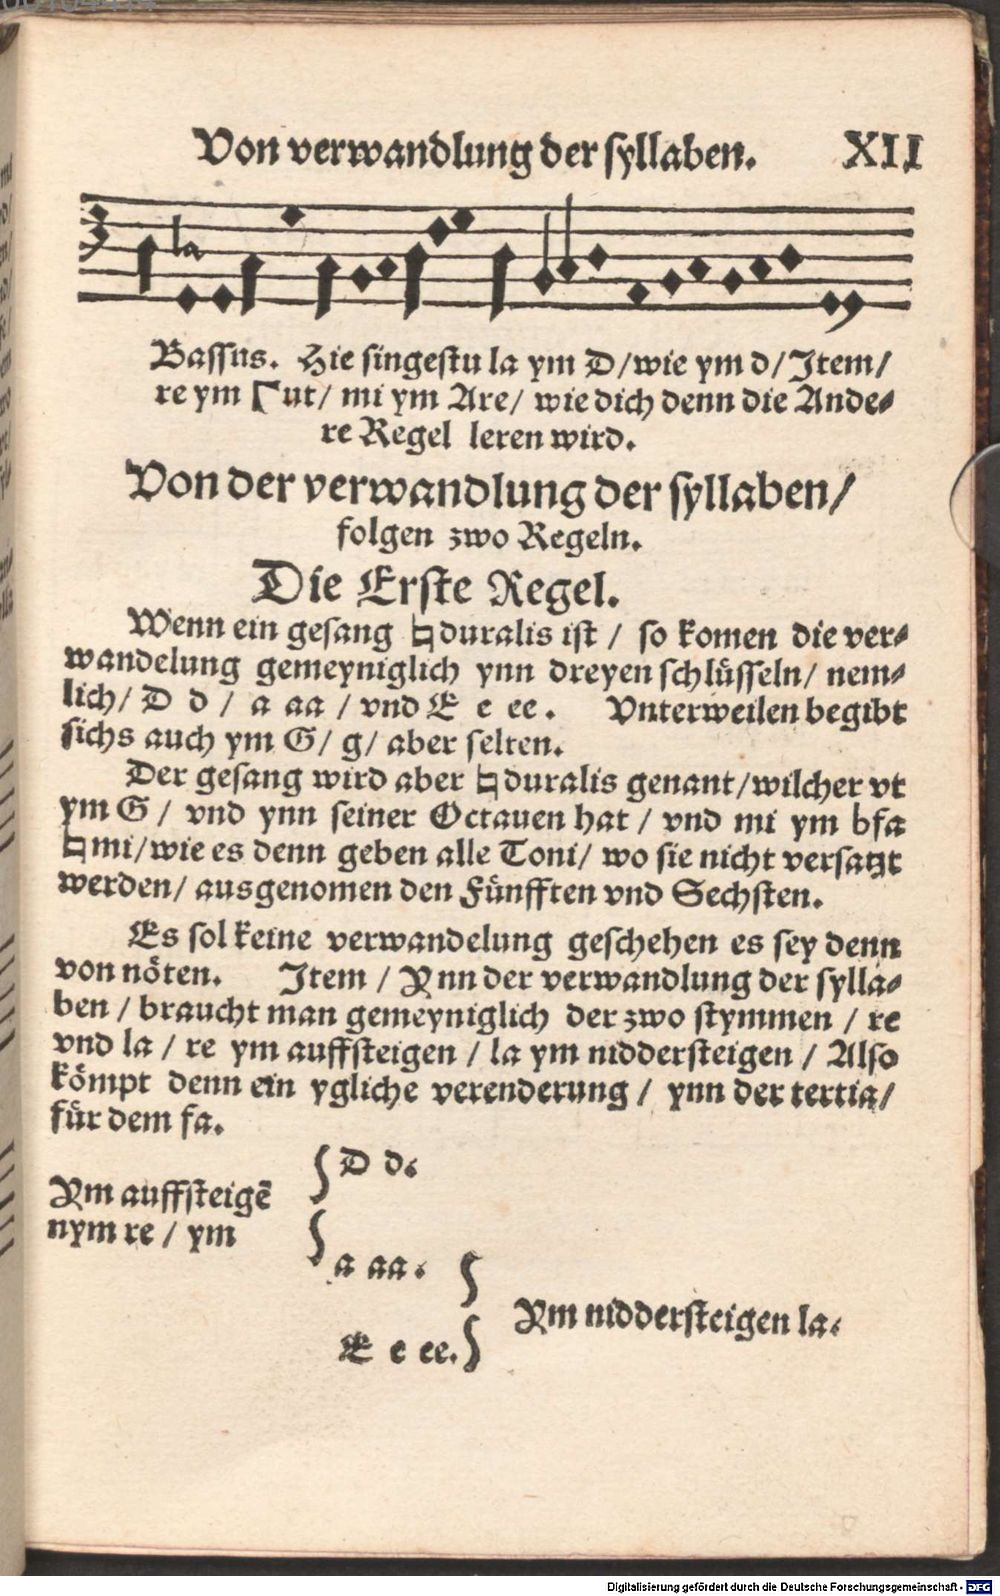 Von verwandlung der syllaben. XII
Bassus. Hie singestu la ym D/wie ym d/Item/
re ym Γ ut/ mi ym Are/ wie dich denn die Ande⸗
re Regel leren wird.
Von der verwandlung der syllaben/
folgen zwo Regeln.
Die Erste Regel.
Wenn ein gesang ♮duralis ist / so komen die ver⸗
wandelung gemeyniglich ynn dreyen schlüsseln/ nem⸗
lich/ D d / a aa / vnd E e ee. Vnterweilen begibt
sichs auch ym G/ g/ aber selten.
Der gesang wird aber ♮duralis genant/wilcher vt
ym G / vnd ynn seiner Octauen hat / vnd mi ym bfa
♮mi/wie es denn geben alle Toni/ wo sie nicht versatzt
werden/ ausgenomen den Fünfften vnd Sechsten.
Es sol keine verwandelung geschehen es sey denn
von nöten. Item / Ynn der verwandlung der sylla⸗
ben / braucht man gemeyniglich der zwo stymmen / re
vnd la / re ym auffsteigen / la ym niddersteigen / Also
kömpt denn ein ygliche verenderung / ynn der tertia/
für dem fa.
D d.
Ym auffsteigē
nym re / ym
a aa.
Ym niddersteigen la.
E e ee.
Digitalisierung gefördert durch die Deutsche Forschungsgemeinschaft - DFG